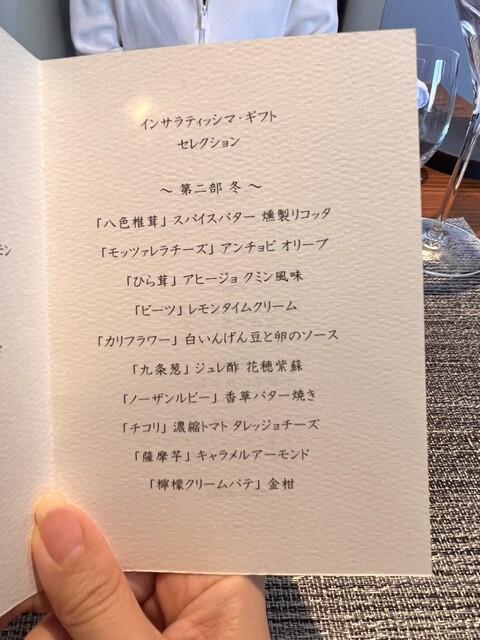 インサラティッシマ・ギフト
セレクション
～ 第二部 冬 ～
「八色椎茸」 スパイスバター 燻製リコッタ
「モッツァレラチーズ」 アンチョビ オリーブ
「ひら茸」 アヒージョ クミン風味
「ビーツ」 レモンタイムクリーム
「カリフラワー」 白いんげん豆と卵のソース
「九条葱」 ジュレ酢 花穂紫蘇
「ノーザンルビー」 香草バター焼き
「チコリ」 濃縮トマト タレッジョチーズ
「薩摩芋」 キャラメルアーモンド
「檸檬クリームパテ」 金柑